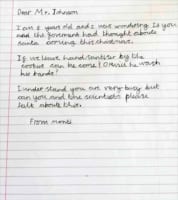 Dear Mr. Johnson
I am 8 year old and I was wondering if you
and the goverment had thought about
santa coming this christmas.
If we leave hand sanitiser by the
cookies can he come? Or will he wash
his hands?
I understand you are very busy but
can you and the scientists please
talk about this.
From monti